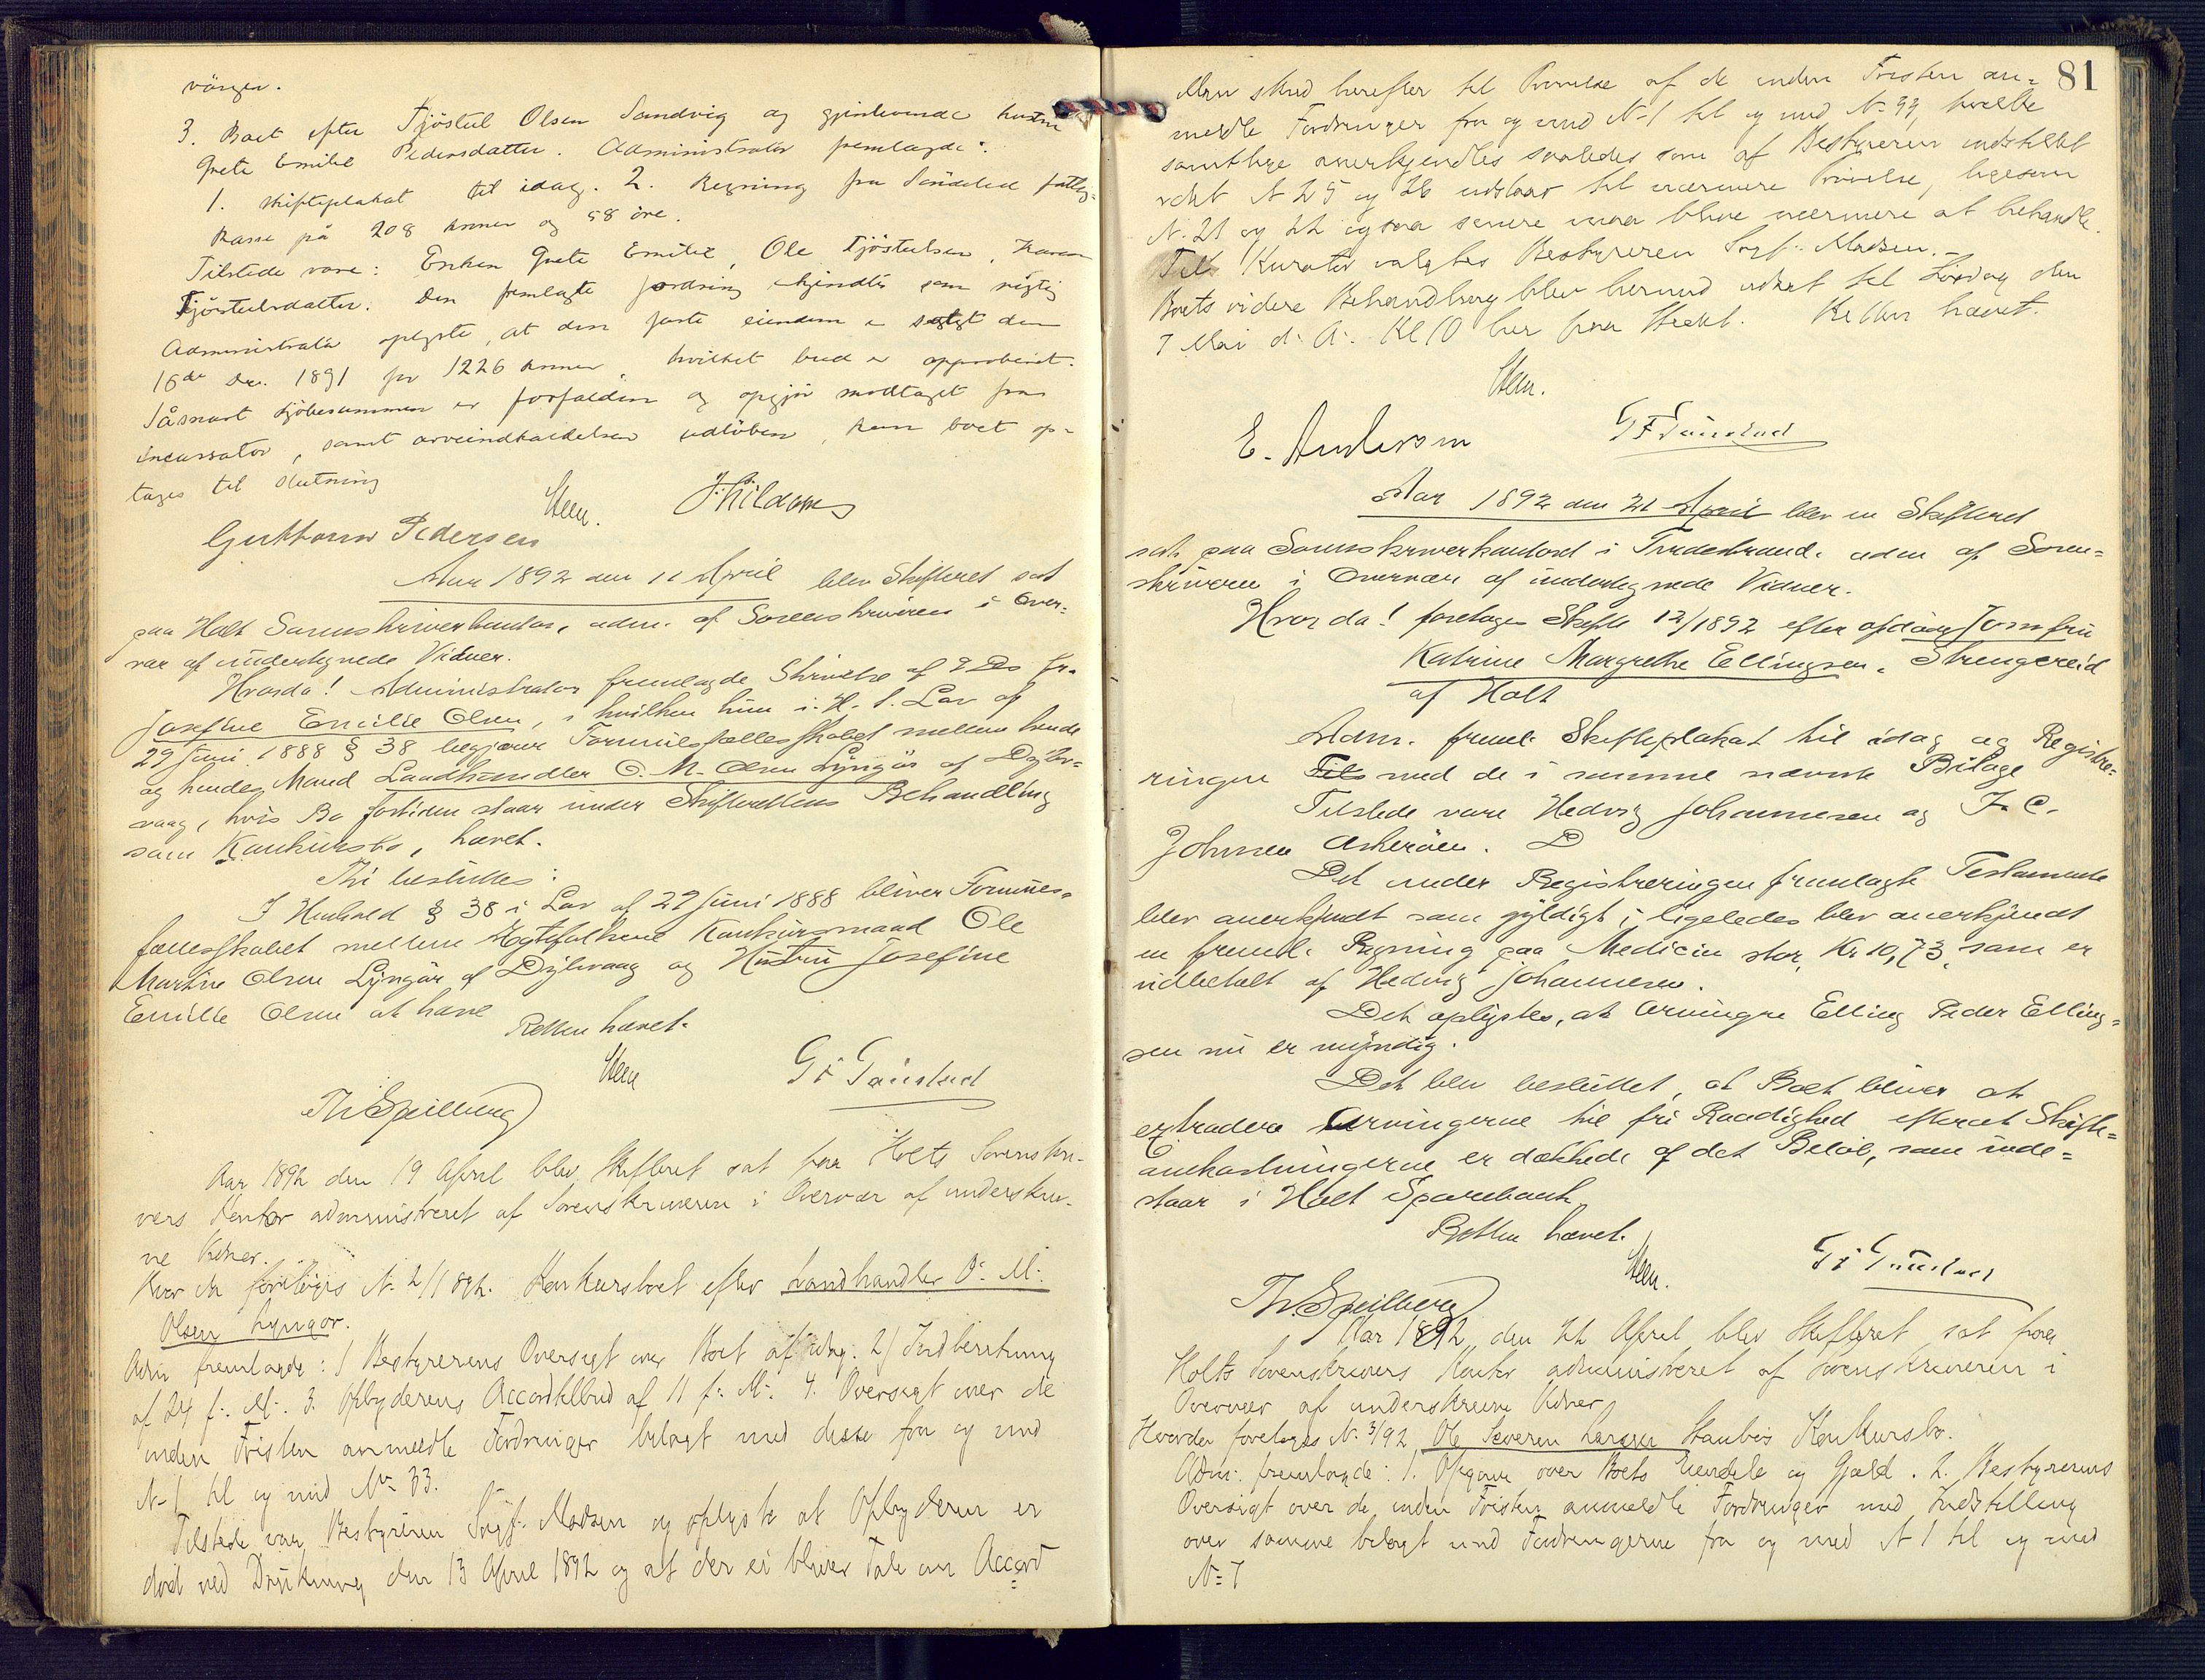 värgen.
3. Boet efter Tjöstul Olsen Sandvig og gjenlevende hustru
Grete Emilie Pedersdatter. Administrator fremlagde:
1. Skifteplakat til idag. 2. Regning fra Söndeled fattig-
kasse på 208 kroner og 58 öre.
Tilstede vare: Enken Grete Emilie, Ole Tjöstulsen, Karen
Tjöstulsdatter. Den fremlagte fordring erkjendtes som rigtig
Administrator oplyste, at den faste eiendom er solgt den
16de Dec. 1891 for 1226 kroner, hvilket bud er approberet.
Såsnart kjöbesummen er forfalden og opgjör modtaget fra
incassator, samt arveindkaldelsen udlöben, kan boet op-
tages til slutning
Steen.
Guttorm Pedersen
Aar 1892 den 11 April blev Skifteret sat
paa Holt Sorenskriverkontor, adm. af Sorenskriveren i Over-
vær af undertegnede Vidner.
Hvorda! Administrator fremlagde Skrivelse af D. Ds fra
Josefine Emilie Olsen, i hvilken hun i H. t. Lov af
29 Juni 1888 § 38 begjærer Formuesfællesskabet mellem hende
og hendes Mand Landhandler O. M. Olsen Lyngör af Dybv-
vaag, hvis Bo fortiden staar under Skifterettens Behandling
som Konkursbo, hævet.
Thi besluttes:
I Henhold § 38 i Lov af 29 Juni 1888 bliver Formues-
fællesskabet mellem Ægtefolkene Konkursmand Ole
Martin Olsen Lyngör af Dybvaag og Hustru Josefine
Emilie Olsen at hæve
Retten hævet.
Steen
Th Spilling
Aar 1892 den 19 April blev Skifteret sat paa Holts Sorenskri-
vers Kontor administreret af Sorenskriveren i Overvær af underskrev-
ne Vidner.
Hvor da foretoges N. 2/1892. Konkursboet efter Landhandler O. M.
Olsen Lyngör.
Adm fremlagde: 1 Bestyrerens Oversigt over Boet af idag. 2/ Indberetning
af 24 f. M. 3. Opbyderens Accordtilbud af 11 f. M. 4. Oversigt over de
inden Fristen anmeldte Fordringer bilagt med disse fra og med
N-1 til og med No 33.
Tilstede var Bestyreren Sagf. Madsen og oplyste at Opbyderen er
död ved Drukning den 13 April 1892 og at der ei bliver Tale om Accord
81
Man skred herefter til Prövelse af de inden Fristen an-
meldte Fordringer fra og med N-1 til og med N- 33, hvilke
samtlige anerkjendtes saaledes som af Bestyreren indstillet
N 25 og 26 udstaar til nærmere Prövelse, ligesom
N. 21 og 22 ogsaa senere maa blive nærmere at behandle.
Til Kurator valgtes Bestyreren Sagf. Madsen.
Boets videre Behandling blev hermed udsat til Lördag den
7 Mai d. A. Kl 10 her paa Stedet. Retten hævet.
Steen.
E. Andersen
Aar 1892 den 21 April blev en Skifteret
sat paa Sorenskriverkontoret i Tvedestrand. adm af Soren-
skriveren i Overvær af undertegnede Vidner.
Hvorda! foretoges Skifte 12/1892 efter afdöde Jomfru
Katrine Margrethe Ellingsen. Strengereid
af Holt
Adm. freml. Skifteplakat til idag og Registre-
ringen med de i samme nævnte Bilage
Tilstede vare Hedvig Johannesen og J. C.
Johnsen Askeröen. D
Det under Registreringen fremlagte Testamente
blev anerkjendt som gyldigt; ligeledes blev anerkjendt
en freml. Regning paa Medicin stor Kr 10,73, som er
udbetalt af Hedvig Johannesen.
Det oplystes, at Arvingen Elling Peder Elling-
sen nu er myndig.
Det blev besluttet, at Boet bliver at
extradere Arvingerne til fri Raadighed efterat Skifte-
omkostningerne er dækkede af det Belöb, som inde-
staar i Holt Sparebank.
Retten hævet.
Steen.
Th. Spilling
Aar 1892 den 22 April blev Skifteret sat paa
Holts Sorenskrivers Kontor administreret af Sorenskriveren i
Overvær af underskrevne Vidner
Hvorda foretoges N. 3/92 Ole Severin Larsen Staubös Konkursbo.
Adm. fremlagde: 1. Opgave over Boets Eiendele og Gjæld. 2. Bestyrerens
Oversigt over de inden Fristen anmeldte Fordringer med Indstilling
over samme bilagt med Fordringerne fra og med N 1 til og med
N= 7